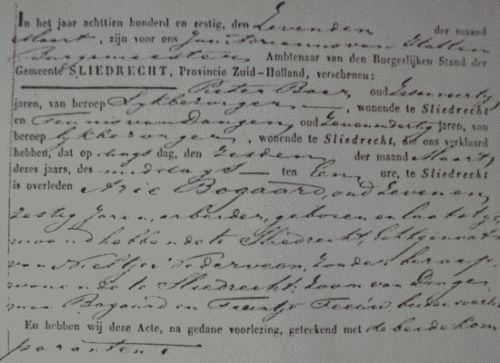 In het jaar achttien honderd en zestig, den Zevenden der maand
Maart, zijn voor ons Jan Adrianus van Hattem
Burgemeester Ambtenaar van den Burgerlijken Stand der
Gemeente SLIEDRECHT, Provincie Zuid-Holland, verschenen:
Pieter Baer, oud Zesenveertig
jaren, van beroep Lijkbezorger, wonende te Sliedrecht
en Teunis van Dongen, oud Zevenendertig jaren, van
beroep lijkbezorger, wonende te Sliedrecht, die ons verklaard
hebben, dat op dingsdag, den Zesden der maand Maart,
dezes jaars, des middags ten Een ure, te Sliedrecht
is overleden Arie Bogaard, oud Zeven en
zestig Jaren, arbeider, geboren en laatst ge
woond hebbende te Sliedrecht, Echtgenoot
van Neeltje Naderveen, zonder beroep,
wonende te Sliedrecht, Zoon van
Bogaard en Teuntje beiden overl
En hebben wij deze Acte, na gedane voorlezing, geteekend met de beide kom
paranten